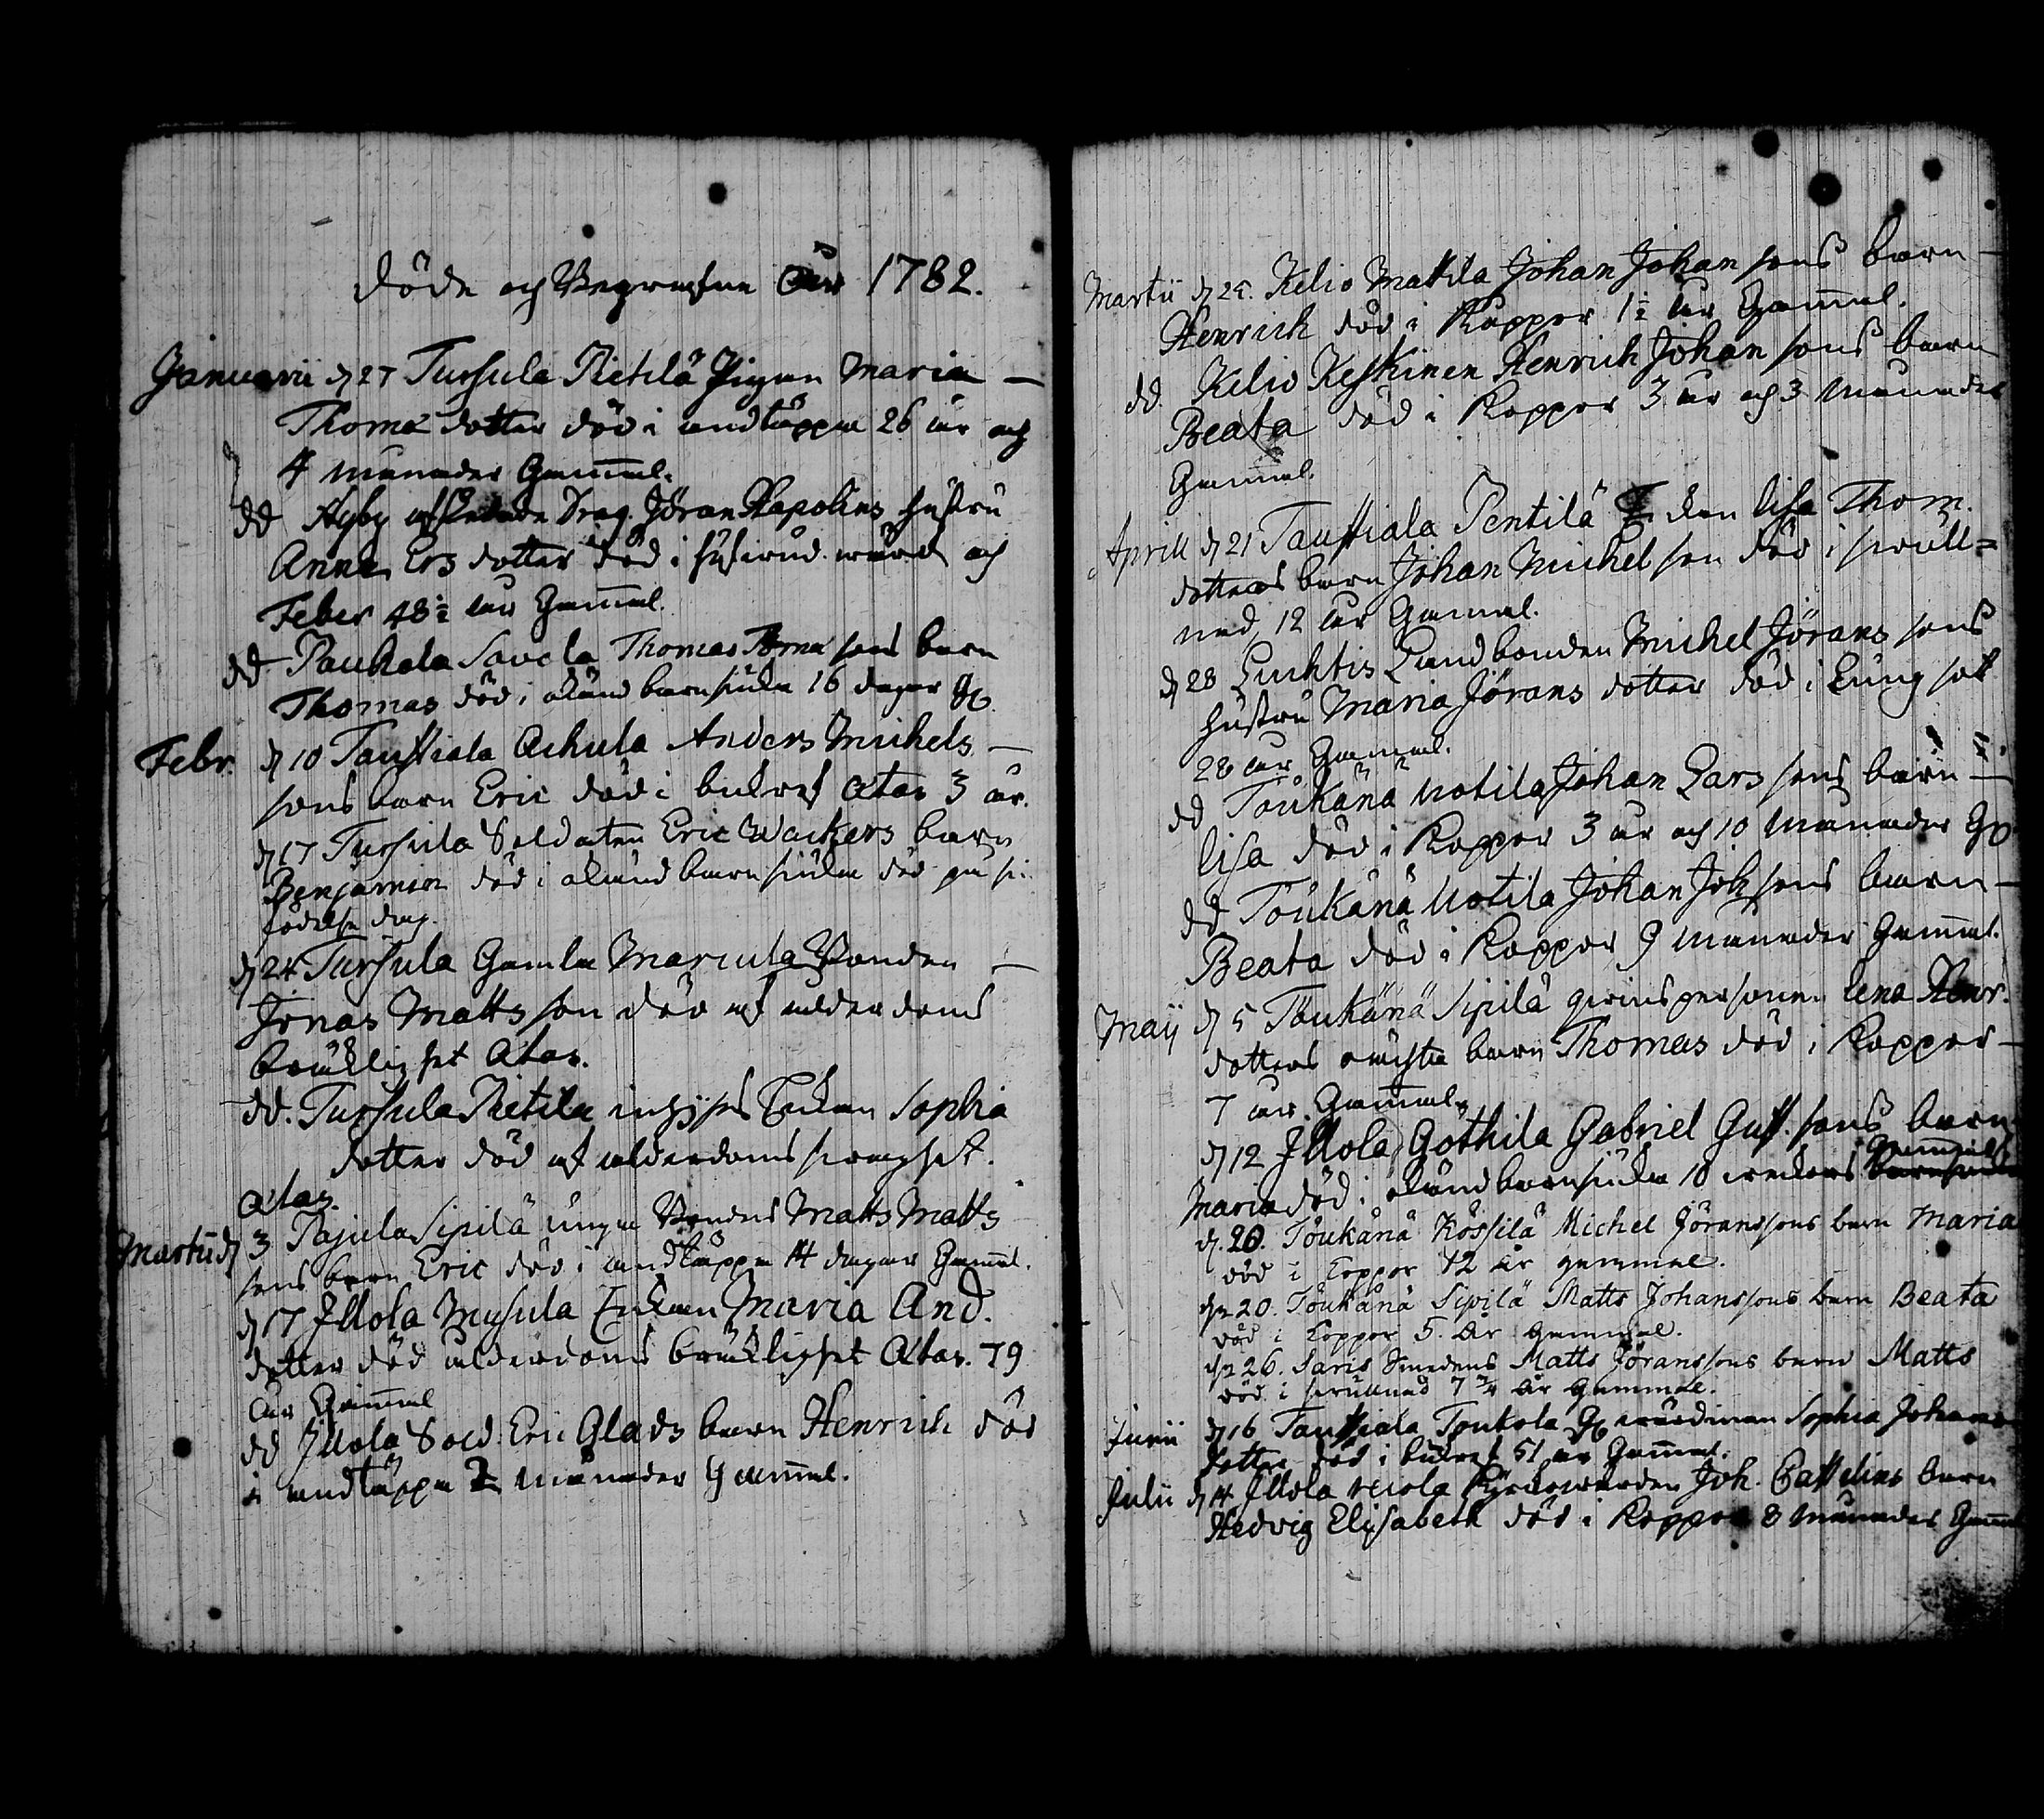 Döde och Begrafne åhr 1782.
Januarii d 27 Tursula Pietilä Pigan Maria
Thomæ dotter död i andtäppa 26 åhr och
4 månader Gammal.
dd afskedade Drag. Jöran Hapolins hustru
Anna Ers dotter död i och
Feber 48½ åhr Gammal.
dd Paukola Savela Thomas sons barn
Thomas död i okänd barnsiuka 16 dagar G
Febr. d 10 Taustiala Achula Anders Michels
sons barn Eric död i bukref ætas 3 år.
d 17 Tursula Soldaten Eric Wackers barn
Benjamin död i okänd barnsiuka död på si:
födelse dag.
d 24 Tursula Gamla Marcula Bonden
Jonas Matts son död af ålderdoms
bräklighet ætas.
dd. Tursula Pietila inhyses Enkan Sophia
dotter död af ålderdoms swaghet.
ætas.
Martii d 3 Pajula Sipilä unga Bondens Matts Matts
sons barn Eric död i andtäppa 14 dagar Gammal.
d 17 Illola Mysula Enkan Maria And.
dotter död ålderdoms bräklighet ætas. 79
åhr Gammal
dd Illola Sold. Eric Glads barn Henrich död
i andtäppa 2 månader Gammal.
Martii d 25. Kelio Mattila Johan Johan sons barn
Henrich död i Koppor 1½ åhr Gammal.
dd Kelio Keskinen Henrich Johan sons barn
Beata död i Koppor 3 år och 3 månader
Gammal.
Aprill d 21 Taustiala Pentilä Enkan Lisa Thom.
dotters barn Johan Michel son död i skrull=
nad 12 åhr Gammal.
d 28 Luhtis Landbonden Michel Jörans sons
hustru Maria Jörans dotter död i Lungsot
28 åhr Gammal.
dd Toukänä Uotila Johan Lars sons barn
Lisa död i Koppor 3 år och 10 månader G
dd Toukänä Uotila Johan Joh sons barn
Beata död i Koppor 9 månader Gammal.
Maij d 5 Toukänä Sipilä qvinspersonen Lena Henr.
dotters oächta barn Thomas död i Koppor
7 åhr Gammal.
d 12 Illola Gothila Gabriel Gust. sons barn
Maria död i okänd barnsiuka 10 weckors Gammal
d. 20. Toukänä Kössilä Michel Jöranssons barn Maria
död i Koppor 12 år gammal.
d. 20. Toukänä Sipilä Matts Johanssons barn Beata
död i Koppor 5 år Gammal.
d. 26. Saris Smedens Matts Jöranssons barn Matts
död i skrullnad 7 ¾ år Gammal.
Junii d 16 Taustiala Toukola Sophia Johans
dotter död i bukref 51 år Gammal.
Julii d 14 Illola Joh. Castelins barn
Hedvig Elisabeth död i Koppor 8 månader Gammal